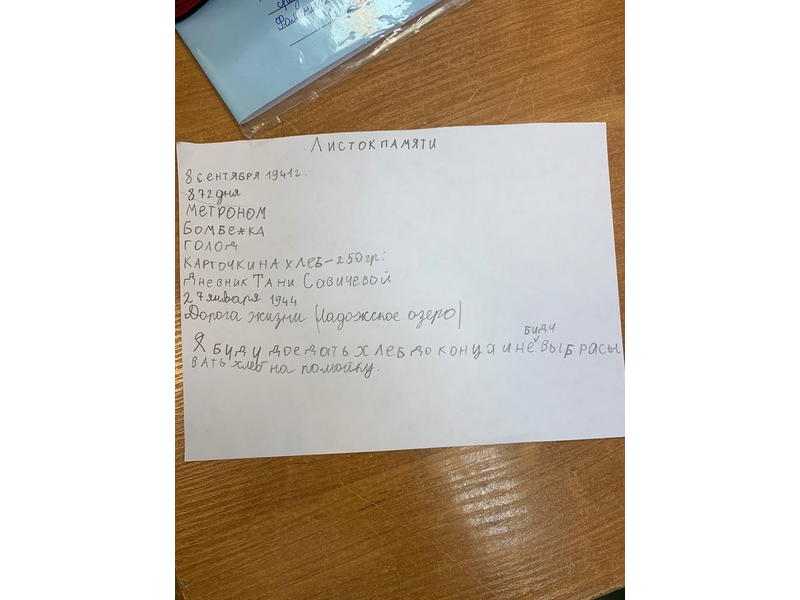 Листок памяти
8 сентября 1941г.
872 дня
Метроном
Бомбежка
Голод
Карточки на хлеб-250гр:
Дневник Тани Савичевой
27 января 1944
Дорога жизни (Ладожское озеро)
буду
Я буду доедать хлеб до конца и не выбрасы
вать хлеб на помойку.